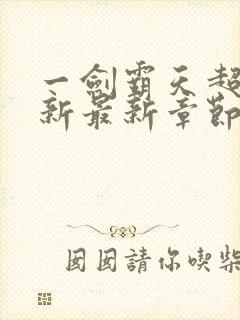 一劍霸天超
新最新章節
囡囡請你喫柴